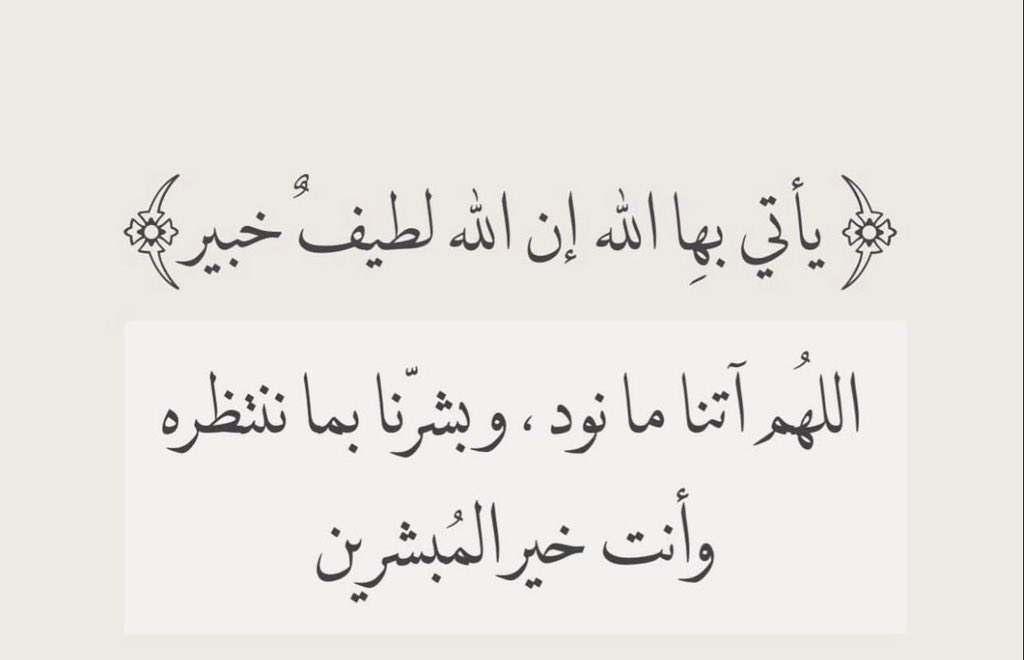 ﴿يأتي بهِا الله إن الله لطيفٌ خبير﴾
اللهُم آتنا ما نود ، وبشرّنا بما ننتظره
وأنت خير المُبشرين